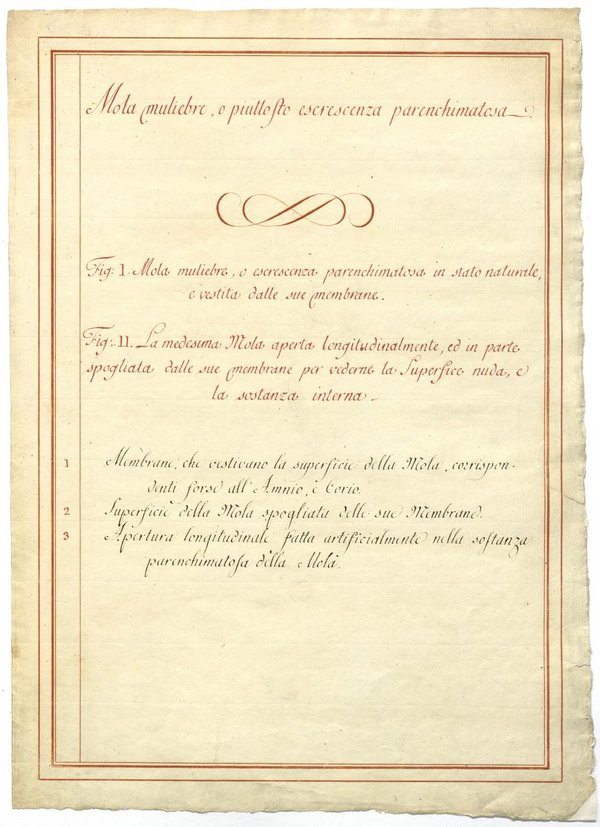 Mola muliebre, o piuttosto escrescenza parenchimatosa.
Fig: I. Mola muliebre, o escrescenza parenchimatosa in stato naturale,
e vestita dalle sue membrane.
Fig: II. La medesima Mola aperta longitudinalmente, ed in parte
spogliata dalle sue membrane per vederne la Superfice nuda, e
la sostanza interna.
1 Membrane, che vestivano la superficie della Mola, corrispon-
denti forse all'Amnio, e Corio.
2 Superficie della Mola spogliata delle sue Membrane.
3 Apertura longitudinale fatta artificialmente nella sostanza
parenchimatosa della Mola.